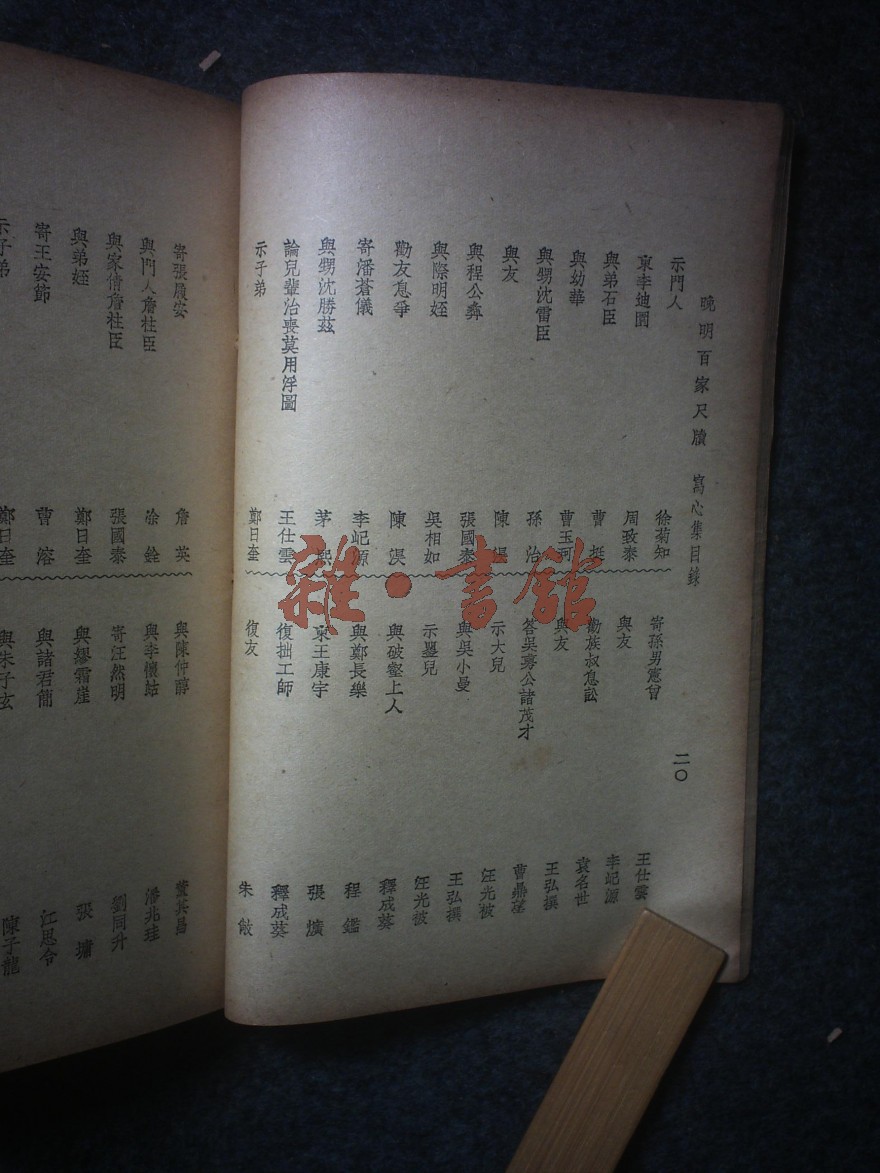 晚明百家尺牘　寫心集目錄
二〇
示門人　徐菊知
柬李迪園　周致泰
與弟石臣　曹挺
與幼華　曹玉珂
與甥沈雷臣　孫治
與友　陳
與程公彝　張國泰
與際明姪　吳相如
勸友息爭　陳淏
寄潘蒼儀　李屺源
與甥沈勝玆　茅熙
論兒輩治喪莫用浮圖　王仕雲
示子弟　鄭日奎
寄孫男憲曾　王仕雲
與友　李屺源
勸族叔息訟　袁名世
與友　王弘撰
答吳雱公諸茂才　曹鼎望
示大兒　汪光被
與吳小曼　王弘撰
示兒　汪光被
與破壑上人　釋成葵
與鄭長樂　程鑑
柬王康宇　張爌
復拙工師　釋成葵
復友　朱敞
寄張晨安　詹英
與門人詹柱臣　徐銓
與家倩詹柱臣　張國泰
與弟姪　鄭日奎
寄王安節　曹溶
示子弟　鄭日奎
與陳仲醇　董其昌
與李懷姑　潘兆珪
寄汪然明　劉同升
與繆霜崖　張墉
與諸君簡　江思令
與朱子玄　陳子龍
雜·書館